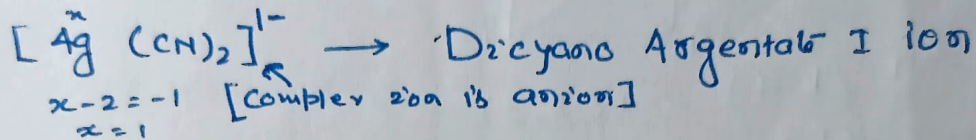 x
[Ag (CN)₂]¹⁻ → Dicyano Argentate I ion
x-2=-1 [Complex ion is anion]
x=1